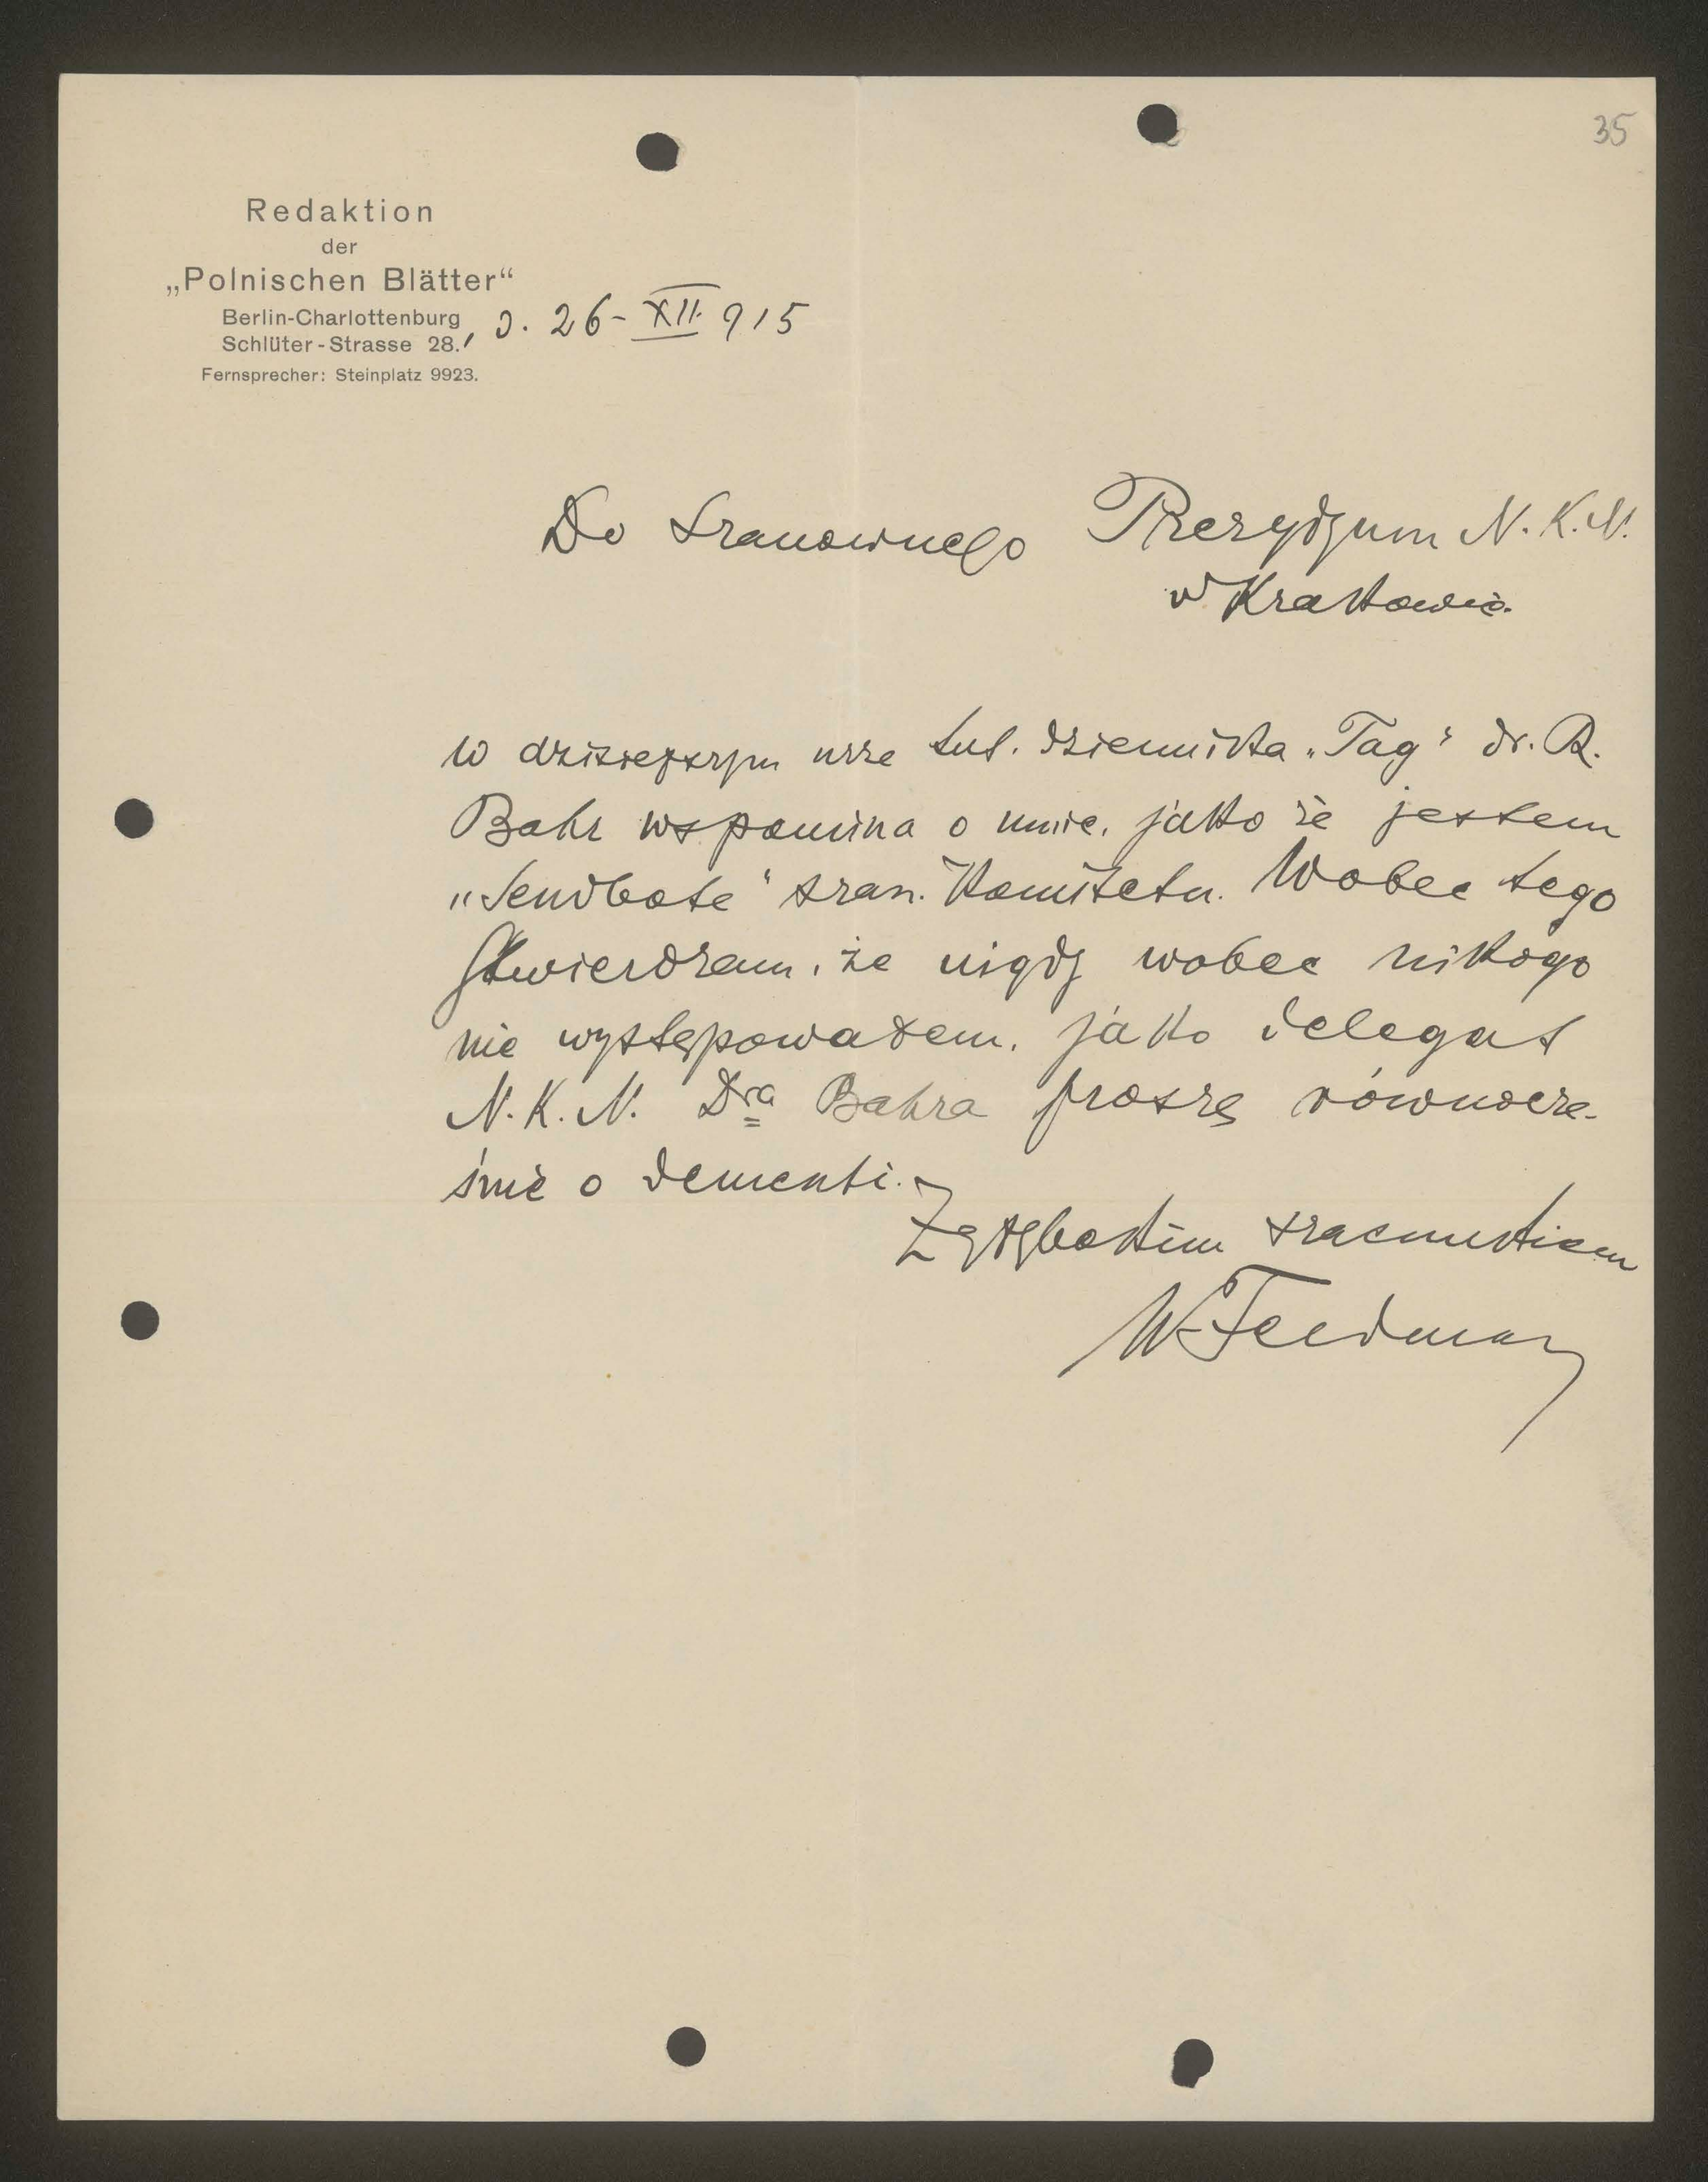 35
Redaktion
der
„Polnischen Blätter“
Berlin-Charlottenburg
Schlüter-Strasse 28., d. 26-XII. 915
Fernsprecher: Steinplatz 9923.
Do Szanownego Prezydyum N.K.N.
w Krakowie.
W dzisiejszym nrze tut. dziennika „Tag“ dr. R.
Bahr wspomina o mnie, jako że jestem
„Sendbote“ szan. Komitetu. Wobec tego
stwierdzam, że nigdy wobec nikogo
nie występowałem, jako delegat
N.K.N. Dra Bahra proszę równocze-
śnie o dementi.
Z głębokim szacunkiem
W Feldman